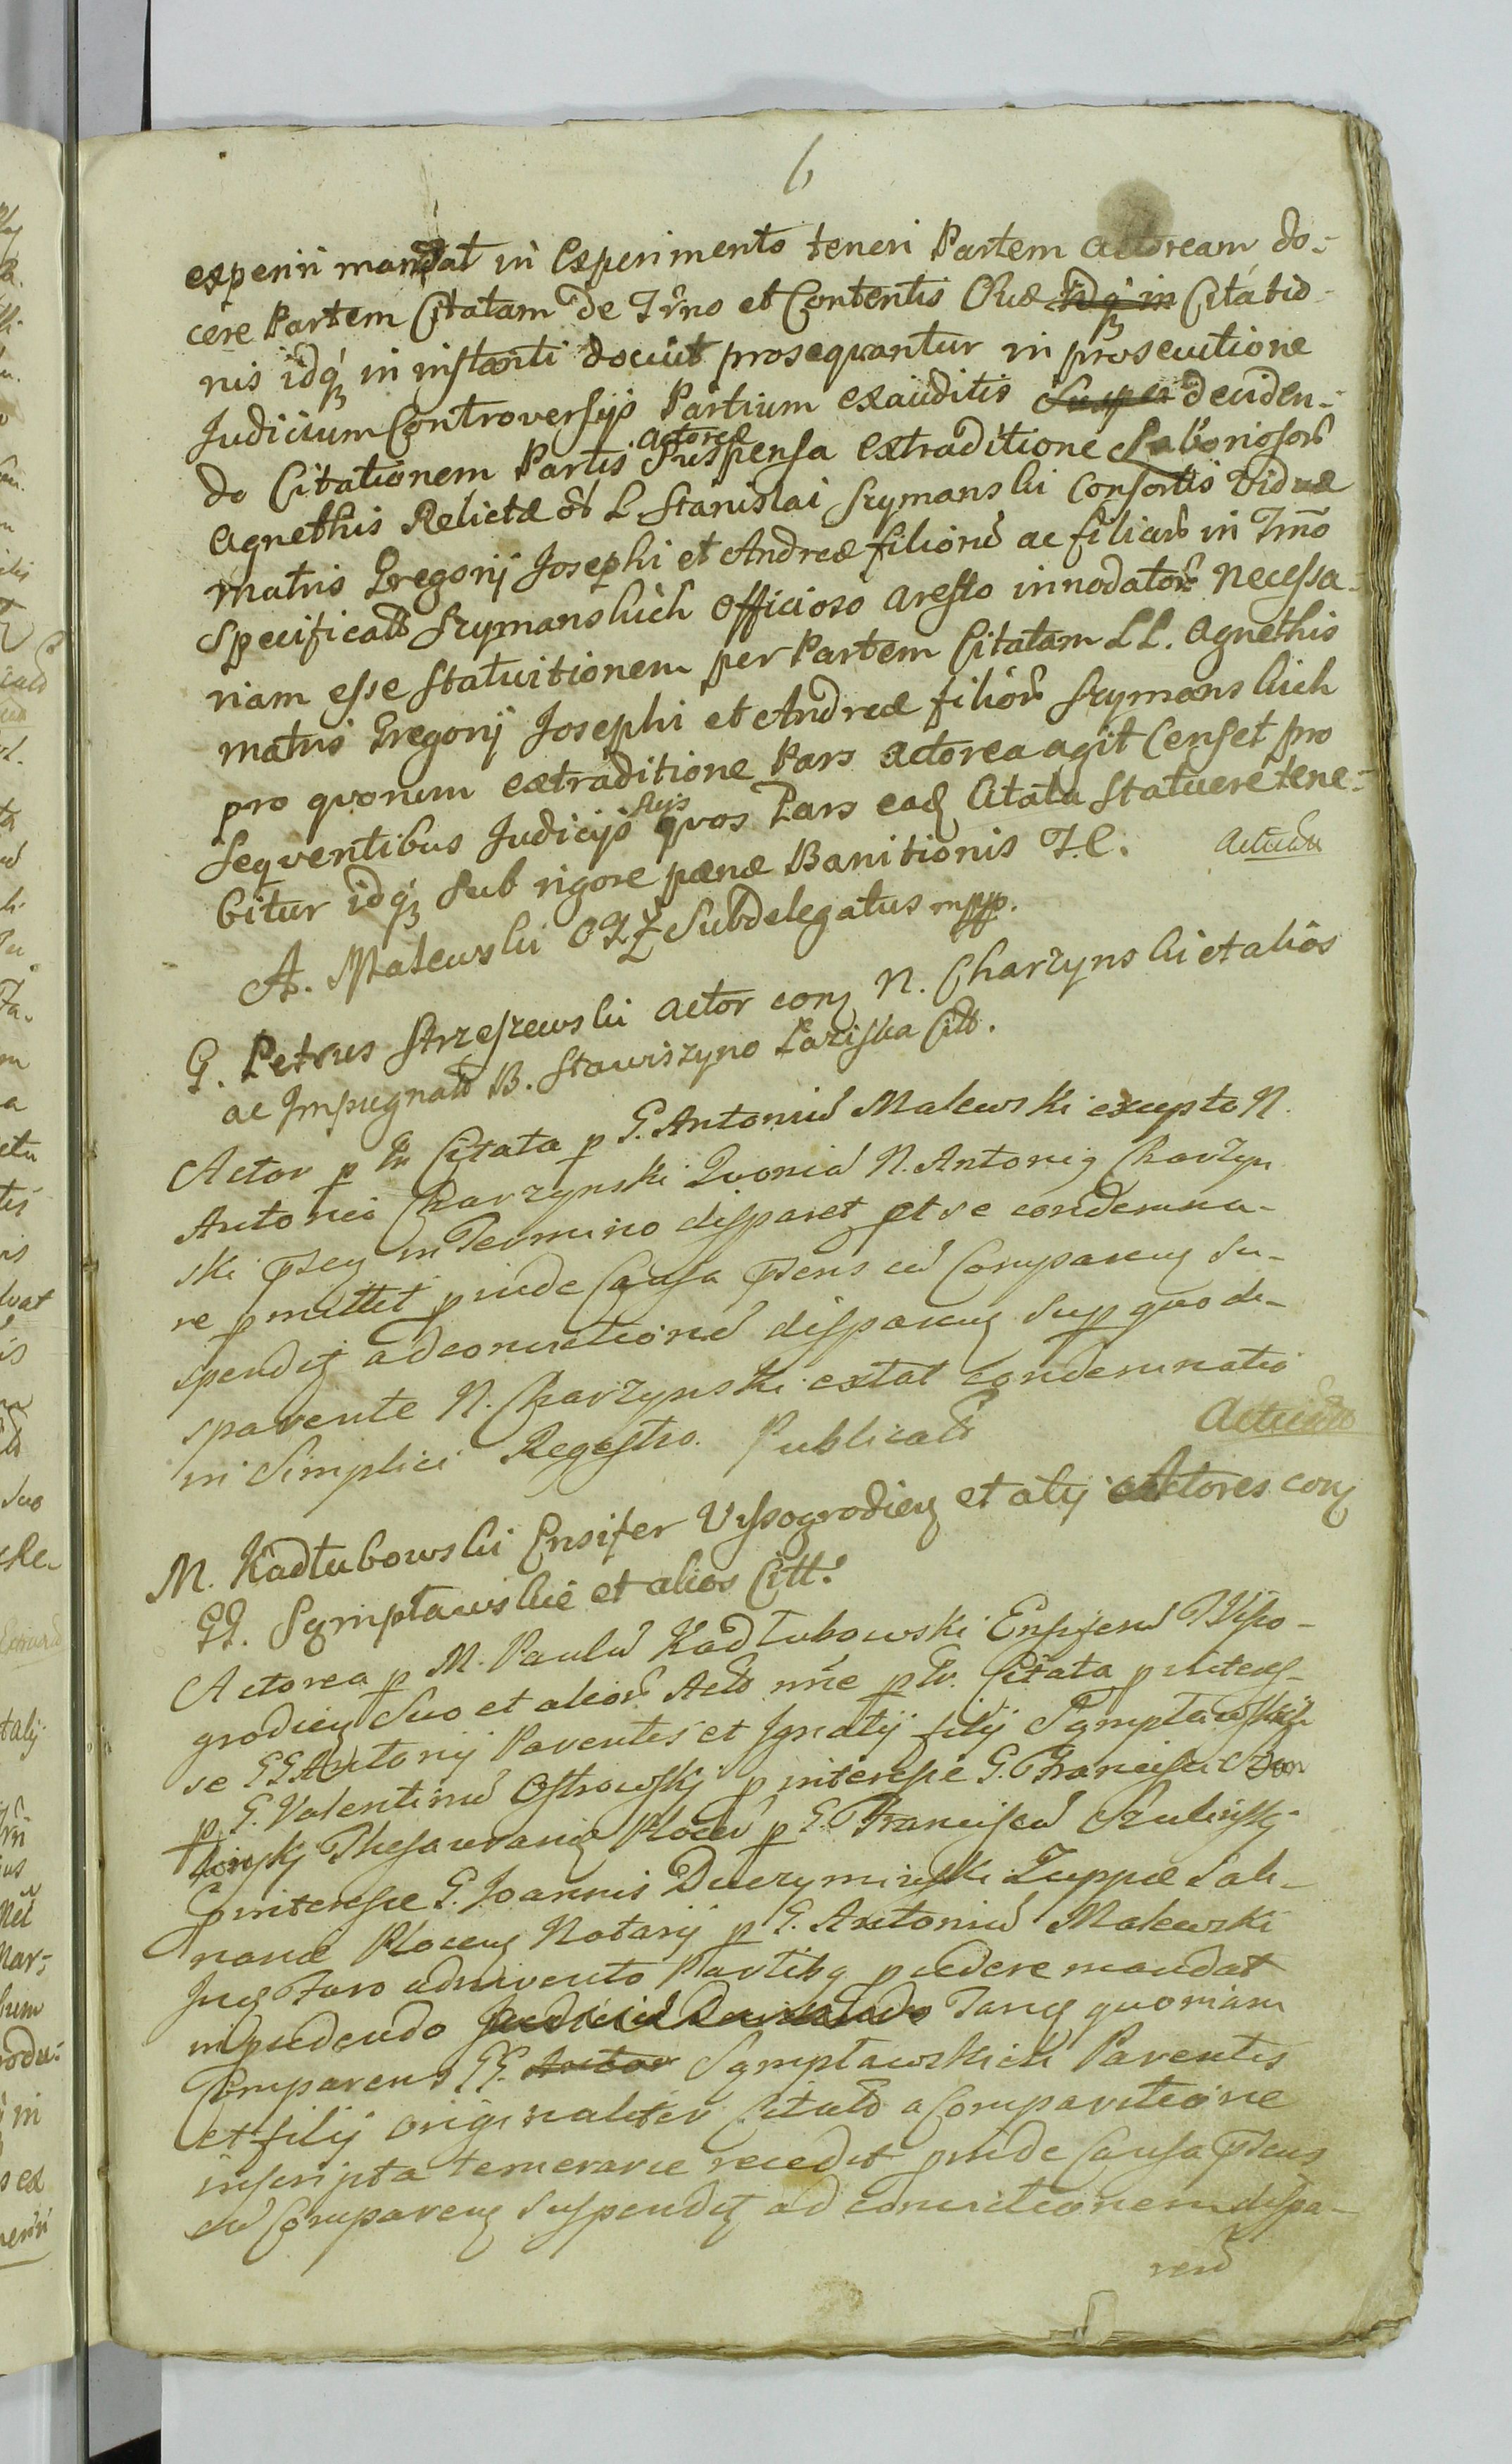 6
experiri mandat in Experimento teneri Partem Actoream do-
cere Partem Citatam de Trno et Contentis Ovae idq in Citatio-
nis idq in instanti docuit prosequantur in prosecutione
Judicium Controversijs Partium exauditis Suspen deciden-
do Citationem Partis Actoreae Suspensa extraditione Laboriosor
Agnethis Relictae ol L. Stanislai Szymanski Consortis Viduae
matris Gregorij Josephi et Andreae filiorū ac filiarū in Tmō
specificat Szymanskich Officioso Aresto innodator necessa-
riam esse statuitionem per Partem Citatam LL. Agnethis
matris Gregorij Josephi et Andreae filiōr Szymanskich
pro quorum extraditione Pars Actorea agit Censet pro
Seqventibus Judicijs suis qvos Pars eadq Citata Statuere tene-
bitur idq Sub rigore paenae Banitionis T. C. Actum
A. Malewski OZZ Subdelegatus mpp.
G. Petrus Strzeszewski Actor conq N. Charzynski et aliōs
ac Impugnat B. Stawiszyno Laziska Citt.
Actor p Tr Citata p G. Antoniū Malewski excepto N.
Antonio Charzynski Qvoniā N. Antonig Charzyn
ski in Termino disparet et se condemna-
re pmittit pinde Causa pns cū Comparenq Su-
spendit ad convictionē disparenq Sup quo di-
sparente N. Charzynski extat Condemnatio
in Simplici Regestro. Publicat Actum
M. Kadłubowski Ensifer Vyssogrodienq et alij Actores conq
GG. Sgmptawskie et alios Citt.
Actorea p M. Paulū Kadłubowski Ensiferū Wyso-
grodienq Suo et aliorū Acto nne p Tr. Citata p interes-
se GG Antonij Parentis et Ignatij filij Sgmptawskich
p G. Valentinū Ostrowskj p interesse G. Francisci
Thesaurarij Plocen p G. Franciscū
p interesse G. Joannis Duczyminski Zuppae Sali-
nariae Plocenq Notarij p G. Antoniū Malewski
Jnq Foro adinvento Partibq pcedere mandat
in pcedendo Judiciū Tanq quoniam
Comparens GG. Actor Sgmptawskich Parentis
et filij originaliter Citat a Comparitione
inscripta temerarie recedit pinde Causa pns
cū Comparenq Suspendit ad convictionem dispa-
renū